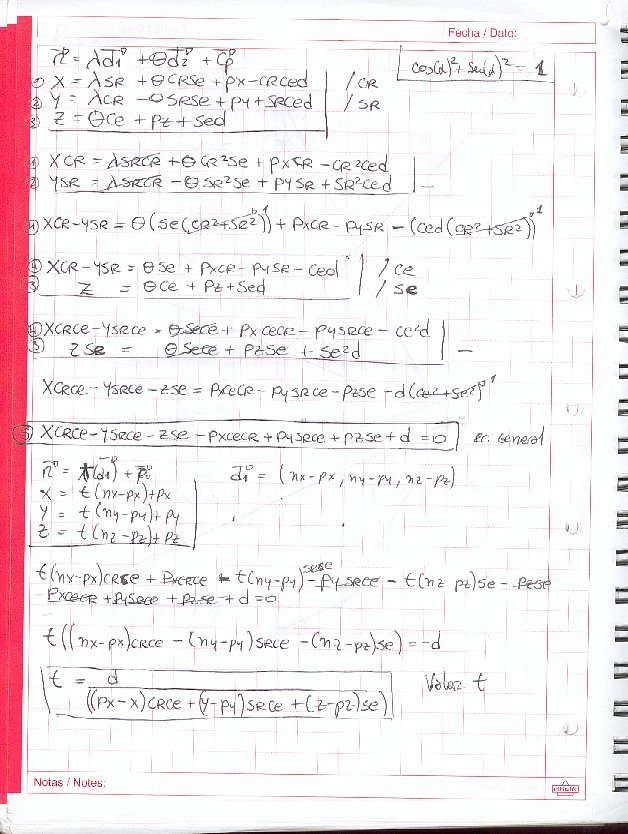 Fecha / Date:
π = λd₁ + θd₂ + Cp
cos(α)² + sen(α)² = 1
① X = λSR + θCRSe + px - CRCed /CR
② Y = λCR - θSRSe + py + SRCed /SR
③ Z = θCe + pz + Sed
① XCR = λSRCR + θCR²Se + pxCR - CR²Ced
② YSR = λSRCR - θSR²Se + pySR + SR²Ced
④ XCR - YSR = θ(Se(CR² + SR²)¹) + pxCR - pySR - (Ced(CR² + SR²))¹
④ XCR - YSR = θSe + pxCR - pySR - Ced /Ce
③ Z = θCe + pz + Sed /Se
④ XCRCe - YSRCe = θSeCe + pxCeCR - pySRCe - Ce²d
③ ZSe = θSeCe + pzSe + Se²d
XCRCe - YSRCe - ZSe = pxCeCR - pySRCe - pzSe - d(Ce² + Se²)¹
⑤ XCRCe - YSRCe - ZSe - pxCeCR + pySRCe + pzSe + d = 0 ec. General
π = t(d₁) + p₀ d₁ = (nx - px, ny - py, nz - pz)
X = t(nx - px) + px
Y = t(ny - py) + py
Z = t(nz - pz) + pz
t(nx - px)CRCe + pxCRCe - t(ny - py)SRCe - pySRCe - t(nz pz)Se - pzSe
- pxCeCR + pySRCe + pzSe + d = 0
t((nx - px)CRCe - (ny - py)SRCe - (nz - pz)Se) = -d
t = d / ((px - x)CRCe + (y - py)SRCe + (z - pz)Se) Valor t
Notas / Notes: